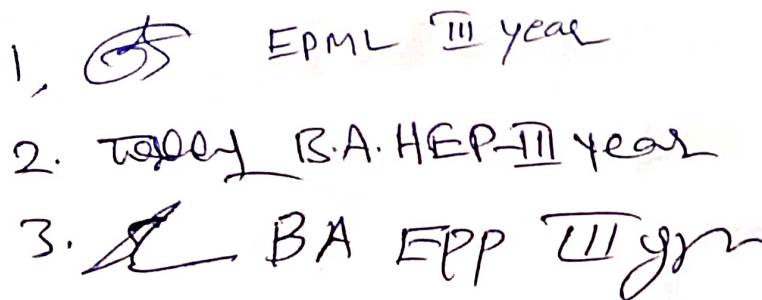 1, EPML III year
2. B.A. HEP-III year
3. BA EPP III yr